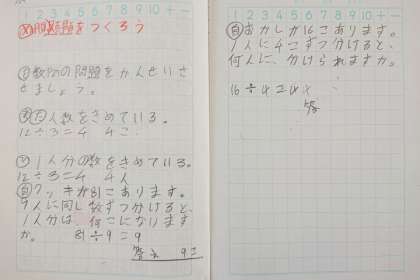 1 2 3 4 5 6 7 8 9 10 + −
問題をつくろう
数分の問題をかんせいさ
せましょう。
人数をきめている。
12÷3=4 4こ
1人分の数をきめている。
12÷3=4 4人
クッキが81こあります。
9人に同じ数ずつ分けると、
1人分は、何こになります
か。 81÷9=9
答え 9こ
1 2 3 4 5 6 7 8 9 10 + −
おかしが16こあります。
1人に4こずつ分けると、
何人に、分けられますか。
16÷4=4
答